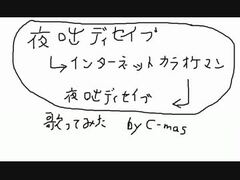 夜咄ディセイブ
インターネットカラオケマン
夜咄ディセイブ
歌ってみた by C-mas